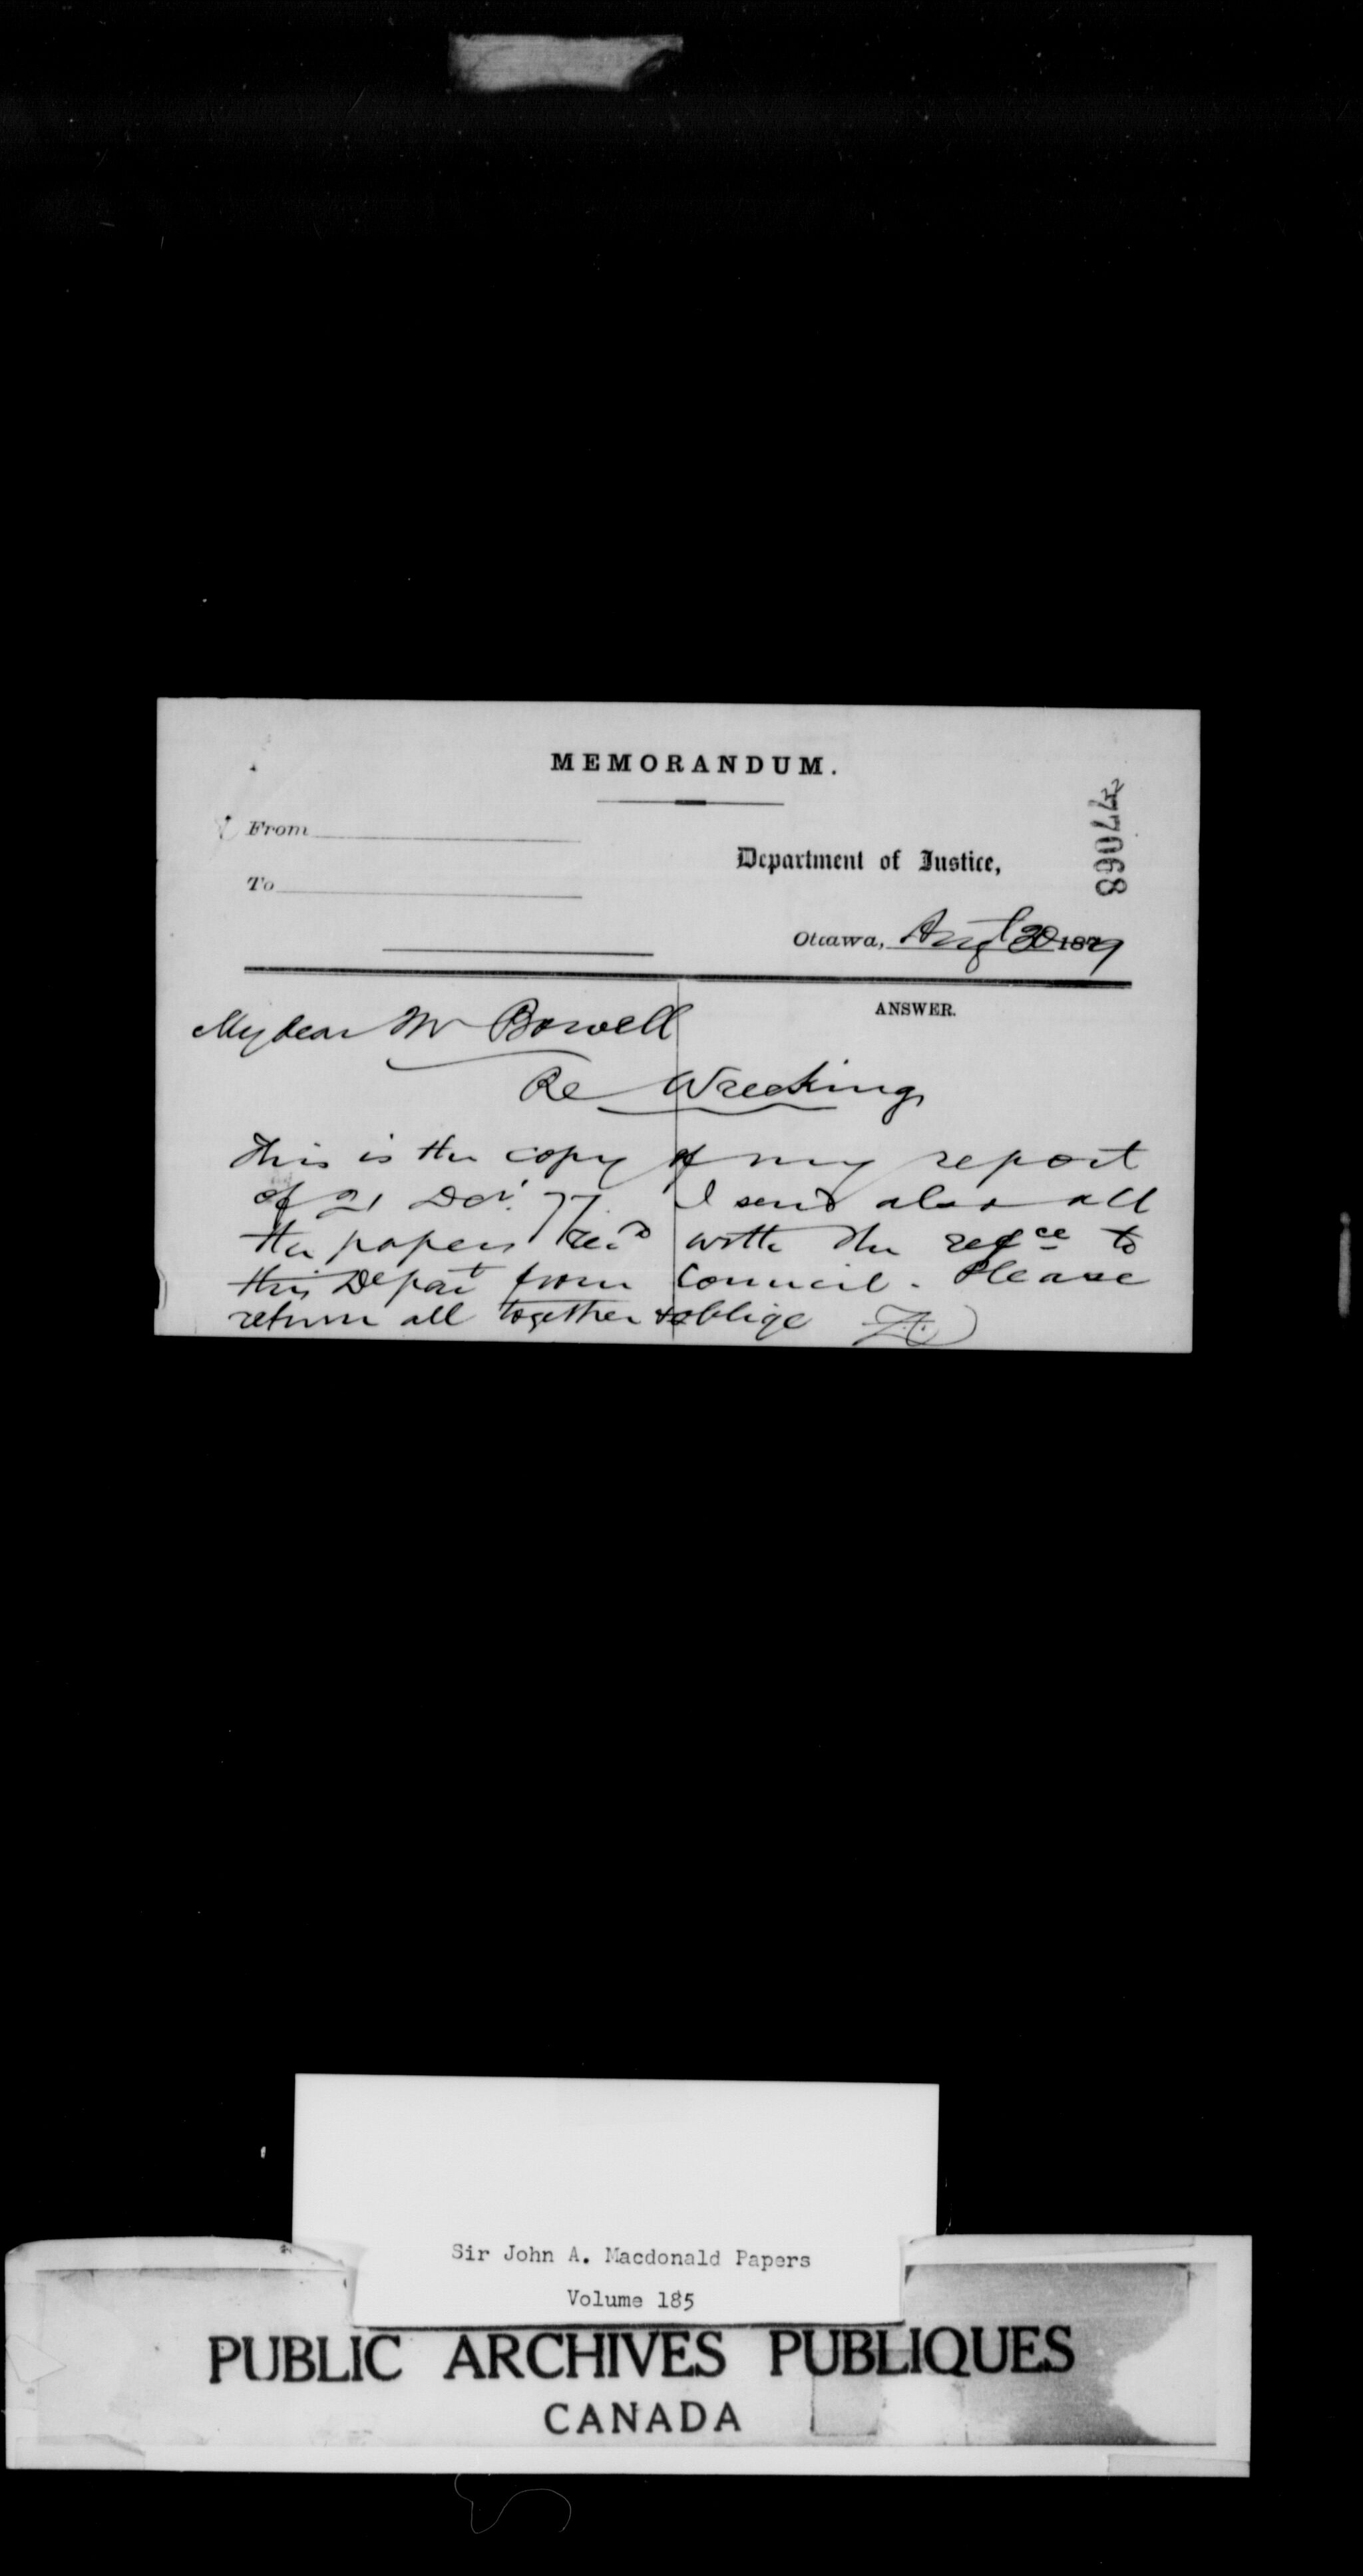 MEMORANDUM.
From
To
Department of Justice,
77098
Ottawa, Augt 30 1879
ANSWER.
My dear Mr Bowell
Re Wrecking
This is the copy of my report
of 21 77. I send also all
the papers rec'd with the refce to
this Depart from Council. Please
return all together & oblige
Sir John A. Macdonald Papers
Volume 185
PUBLIC ARCHIVES PUBLIQUES
CANADA